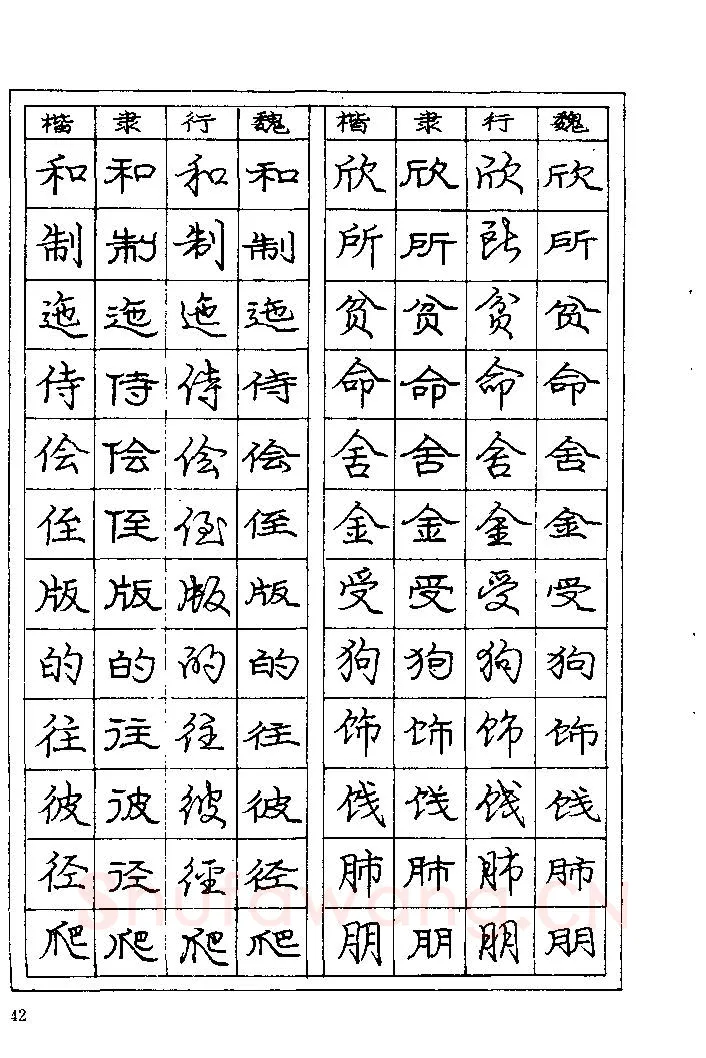 楷 隶 行 魏 楷 隶 行 魏
和 和 和 和 欣 欣 欣 欣
制 制 制 制 所 所 所 所
迤 迤 迤 迤 贫 贫 贫 贫
侍 侍 侍 侍 命 命 命 命
侩 侩 侩 侩 舍 舍 舍 舍
侄 侄 侄 侄 金 金 金 金
版 版 版 版 受 受 受 受
的 的 的 的 狗 狗 狗 狗
往 往 往 往 饰 饰 饰 饰
彼 彼 彼 彼 饯 饯 饯 饯
径 径 徑 径 肺 肺 肺 肺
爬 爬 爬 爬 朋 朋 朋 朋
Shufawang.CN
42